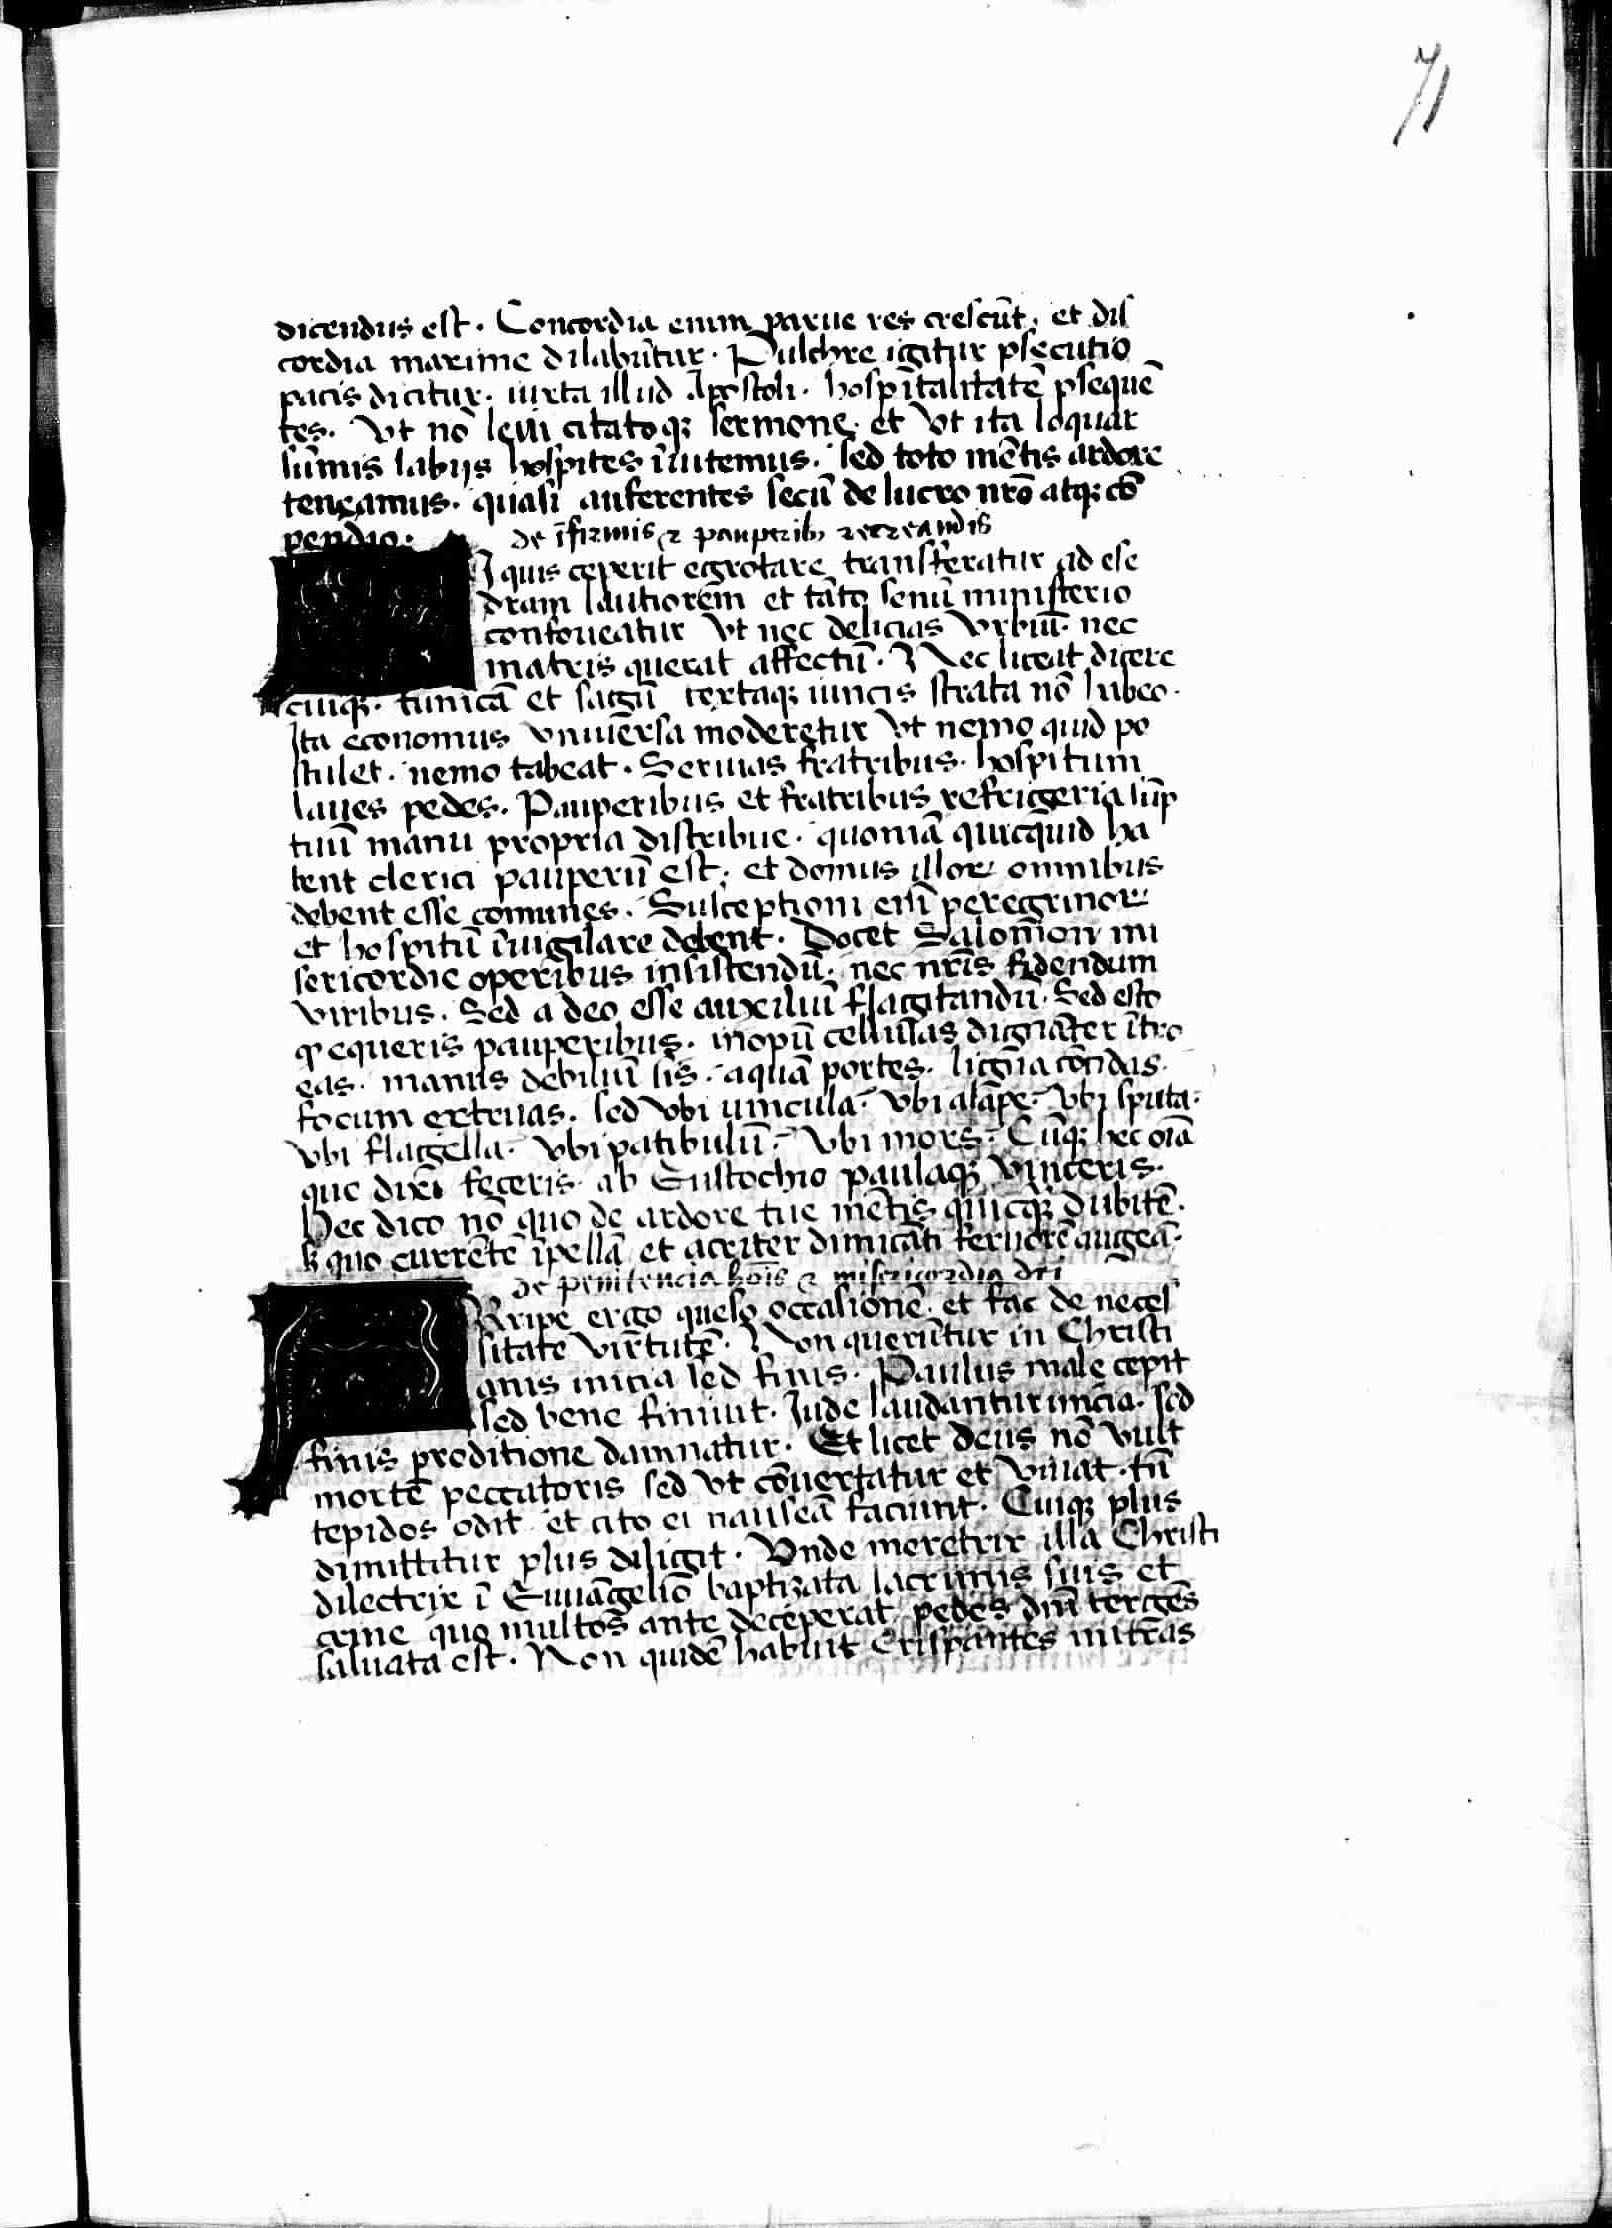 71
dicendus est. Concordia enim parue res crescūt. et dis
cordia maxime dilabūtur. Pulchre igitur psecutio
pacis dicitur. iuxta illud Apostoli. hospitalitatē psequē
tes. Vt nō leui citatoqꝫ sermone. et vt ita loquar
sūmis labijs hospites īuitemus. sed toto mētis ardore
teneamus. quasi auferentes secū de lucro nrō atqꝫ cō
pendio.
de īfirmis ⁊ pauperibꝫ recreandis
I quis ceperit egrotare transferatur ad exe
dram lautiorem et tāto senū ministerio
confoueatur vt nec delicias vrbiū. nec
matris querat affectū. Nec liceat dicere
cuiqꝫ. tunicā et sagū textaqꝫ iuncis strata nō habeo.
Ita economus vniuersa moderetur vt nemo quid po
stulet. nemo habeat. Seruias fratribus. hospitum
laues pedes. Pauperibus et fratribus refrigeria sūp
tuū manu propria distribue. quoniā quicquid ha
bent clerici pauperū est. et domus illoꝝ omnibus
debent esse comunes. Susceptioni eīn peregrinoꝝ
et hospitū īuigilare debent. Docet Salomon mi
sericordie operibus insistendū. nec nrīs fidendum
viribus. Sed a deo esse auxiliū flagitandū. Sed esto
qꝫ equeris pauperibus. inopū cellulas dignāter ītro
eas. manus debiliū sis. aquā portes. ligna cōcidas.
focum extruas. sed vbi vincula. vbi alāpe. vbi sputa.
vbi flagella. vbi patibulū. vbi mors. Cūqꝫ hec oīa
que dixi feceris. ab Eustochio paulaqꝫ vinceris.
Hec dico nō quo de ardore tue mētis quicqꝫ dubitē.
sꝫ quo currētē īpellā et acriter dimicāti feruorē augeā.
de penitencia hoīs ⁊ misericordia dei
Rripe ergo queso occasionē. et fac de neces
sitate virtutē. Non querūtur in Christi
anis inicia sed finis. Paulus male cepit
sed bene finiuit. Iude laudantur inicia. sed
finis proditione damnatur. Et licet Deus nō vult
mortē peccatoris sed vt cōuertatur et viuat. tn̄
tepidos odit et cito ei nauseā faciunt. Cuiqꝫ plus
dimittitur plus diligit. Vnde meretrix illa Christi
dilectrix ī Euuāgelio baptizata lacrimis suis et
crine quo multos ante deceperat pedes dn̄i tergēs
saluata est. Non quidē habuit crispantes mitras